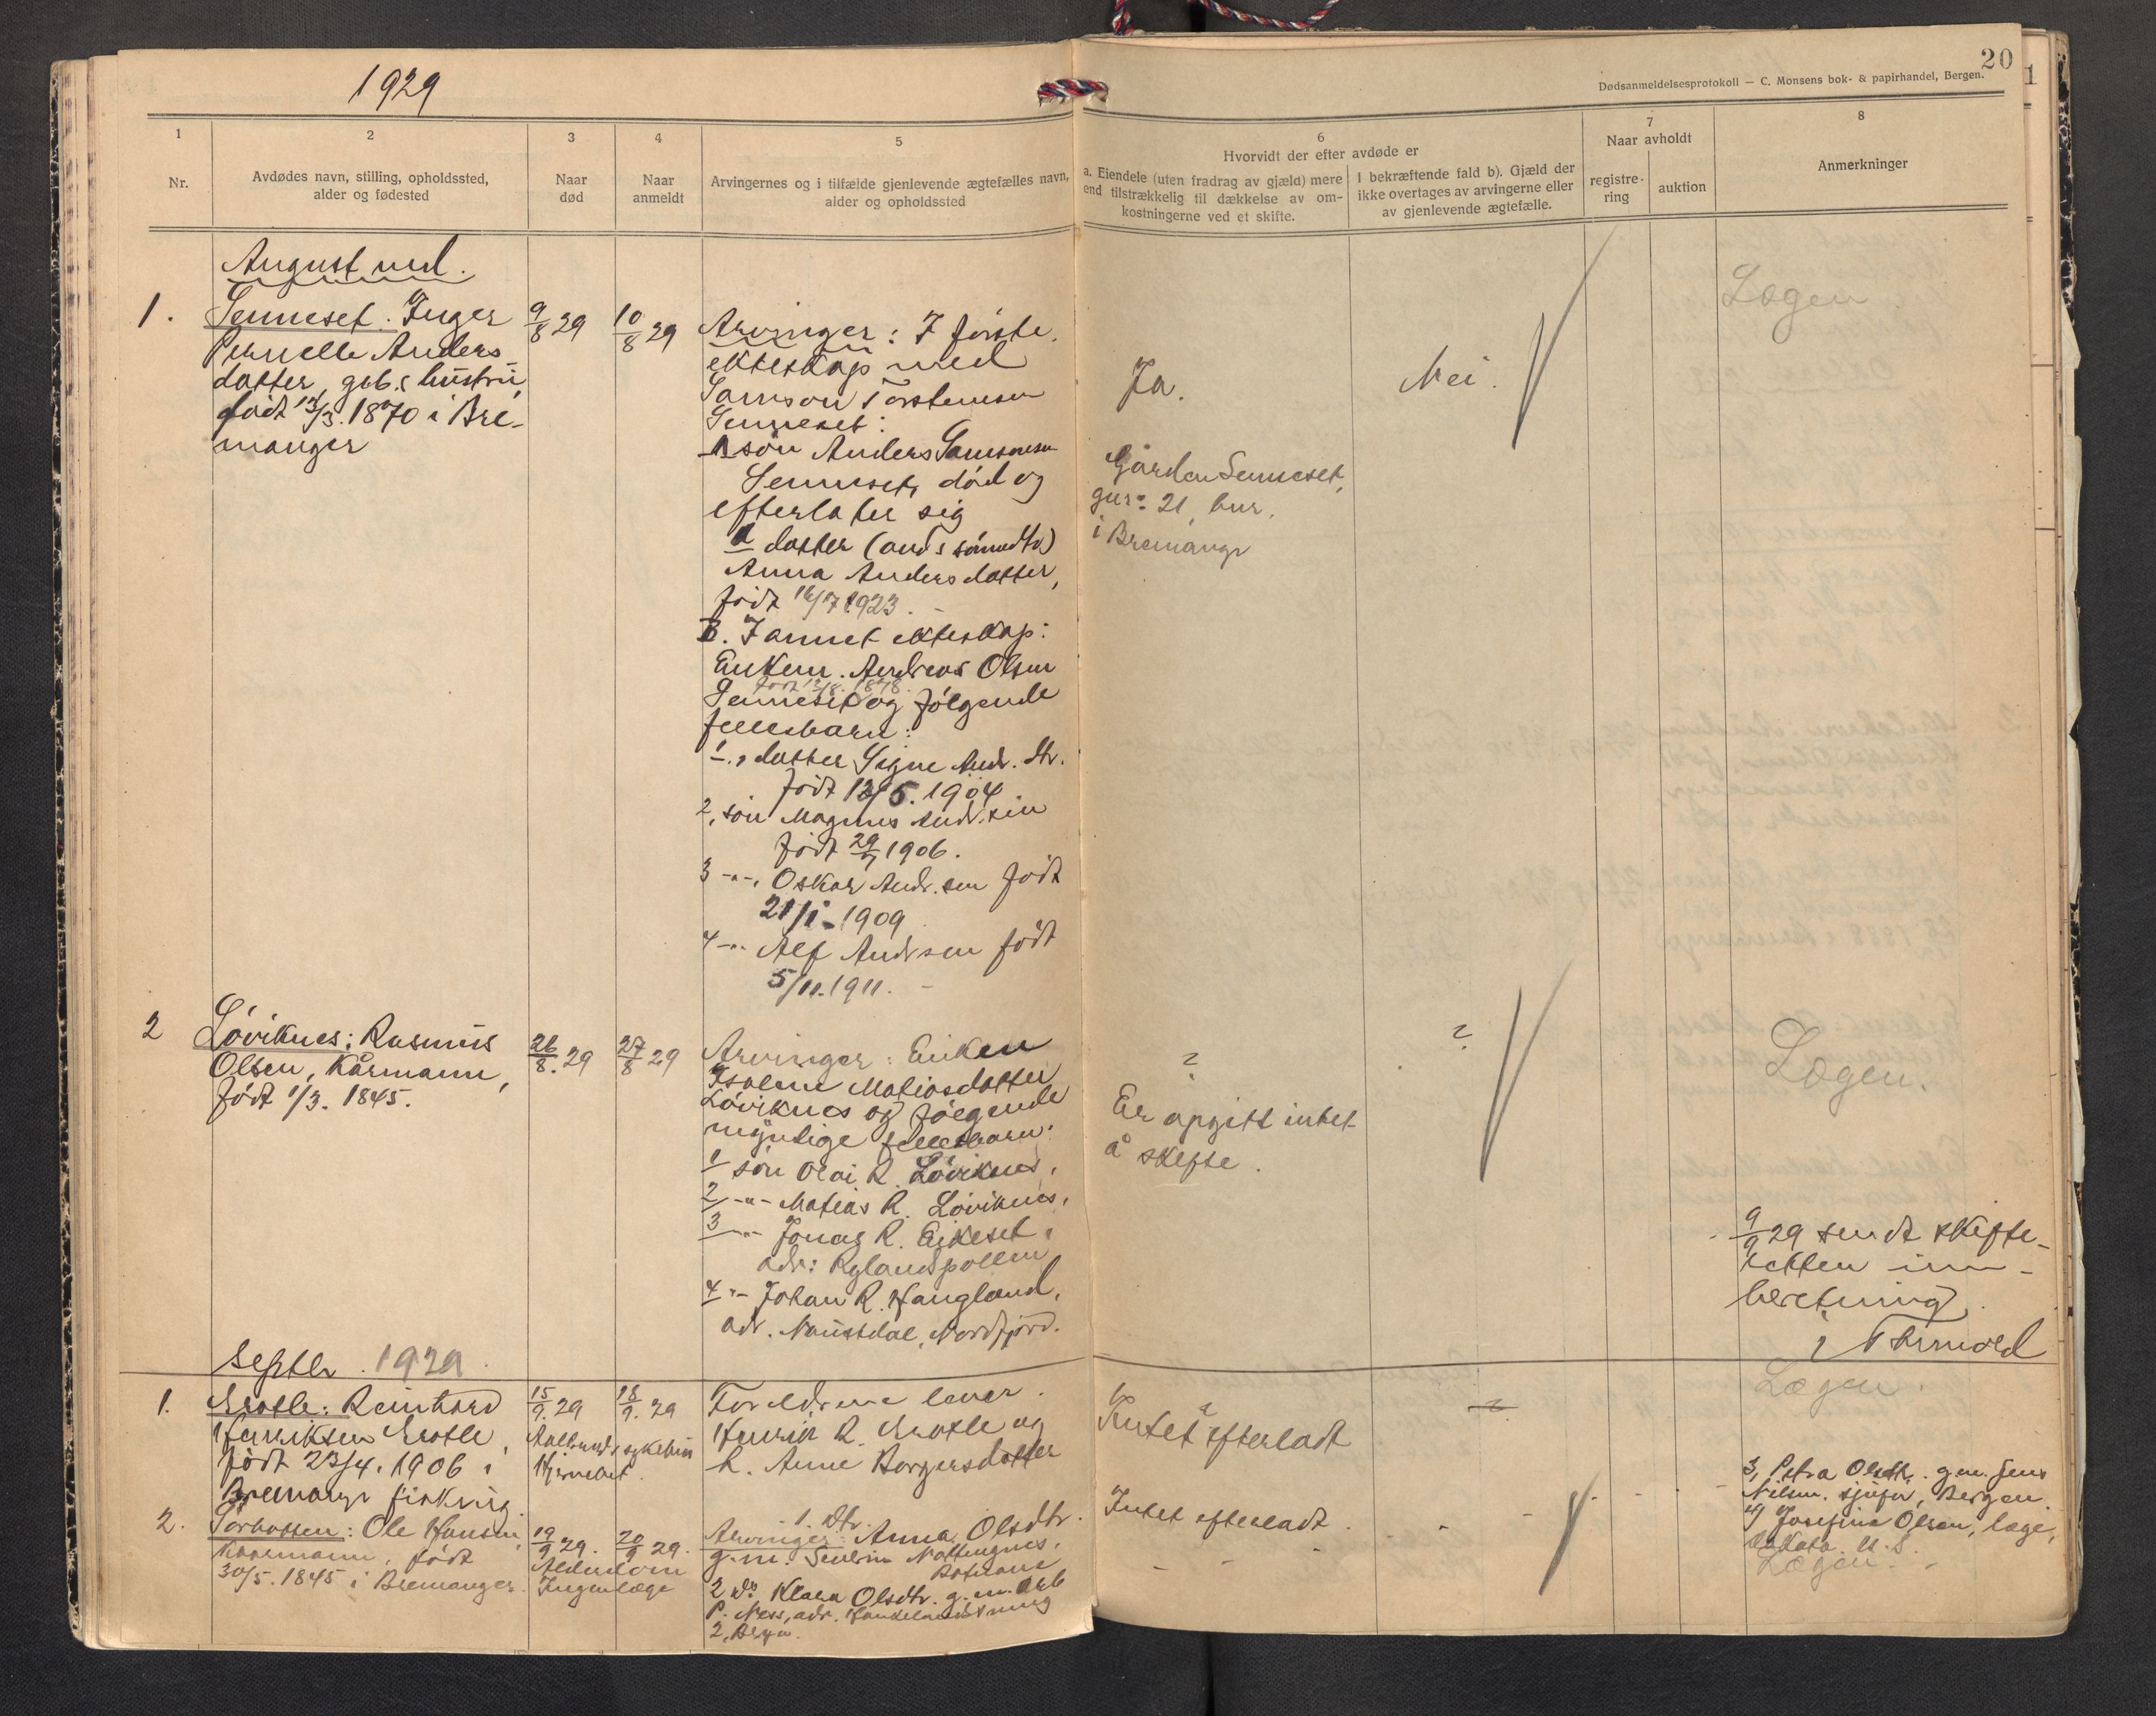 1929
20
Dødsanmeldelsesprotokoll — C. Monsens bok- & papirhandel, Bergen.
1
2
3
4
5
6
7
8
Nr.
Avdødes navn, stilling, opholdssted,
alder og fødested
Naar
død
Naar
anmeldt
Arvingernes og i tilfælde gjenlevende ægtefælles navn,
alder og opholdssted
Hvorvidt der efter avdøde er
a. Eiendele (uten fradrag av gjæld) mere
end tilstrækkelig til dækkelse av om-
kostningerne ved et skifte.
I bekræftende fald b). Gjæld der
ikke overtages av arvingerne eller
av gjenlevende ægtefælle.
Naar avholdt
registre-
ring
auktion
Anmerkninger
August
1.
Senneset. Inger
Pernelle Anders
datter, hustru
født 12/3. 1870 i Bre-
manger
9/8 29
10/8 29
Arvinger: I første
ekteskap med
Samson Torstensen
Senneset:
søn Anders Samsonsen
Senneset, død og
efterlater sig
datter
Anna Andersdatter,
født 16/7 1923. -
B. I annet ekteskap:
Enkem. Andreas Olsen
født 12/8. 1878.
Senneset og følgende
fellesbarn:
1., datter Signe Andr. dtr.
født 13/5. 1904
2, søn Magnus Andr. sen
født 29/7 1906.
3 -"-, Oskar Andr. sen født
21/1 - 1909
4 -"- Alf Andrsen født
5/11. 1911. -
Ja.
Gården Senneset,
gnr: 21, bnr.
i Bremangr
Nei.
Lægen
2
Løviknes: Rasmus
Olsen, Kårmann,
født 1/3. 1845.
26/8. 29
27/8 29
Arvinger: Enken
Isaline Matiasdatter
Løviknes og følgende
myndige fellesbarn:
1 søn Olai R. Løviknes,
2 -"- Matias R. Løviknes,
3 -"- Jonas R. Eikeset,
adr: Rylandspollen
4 -"- Johan R. Haugland,
adr. Naustdal, Nordfjord.
?
Er opgitt intet
å skifte.
?
Lægen.
9/9 29 sendt skifte-
retten inn-
beretning.
Septbr. 1929
1.
Reinhard
Henriksen
født 23/4. 1906 i
Bremangr
15/9. 29
18/9. 29
Foreldrene lever.
Henrik R. og
h. Anne Borgersdatter
Intet efterladt
?
Lægen.
2.
Sørbotten: Ole Hansen,
Kaarmann, født
30/5. 1845 i Bremanger.
19/9 29.
20/9 29.
Alderdom
Ingen læge
1. Dtr.
Arvinger: Anna Olsdtr.
g. m. Severin
2 do Klara Olsdtr. g. m.
P. Ness, adr.
2, Bergen.
Intet efterladt.
3, Petra Olsdtr. g. m. Jens
Nilsen. sjåfør, Bergen.
4) Josefine Olsen, læge,
U. S.
Lægen.